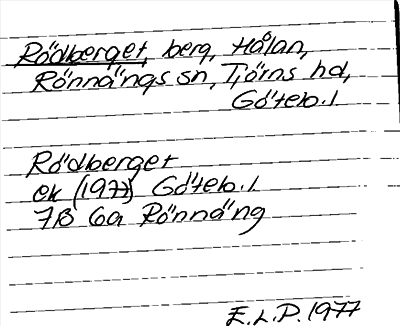 Rödberget, berg, Hålan,
Rönnängs sn, Tjörns hd,
Göteb. l.
Rödberget
ek (1977) Göteb. l
7B 6a Rönnäng
E.L.P. 1977